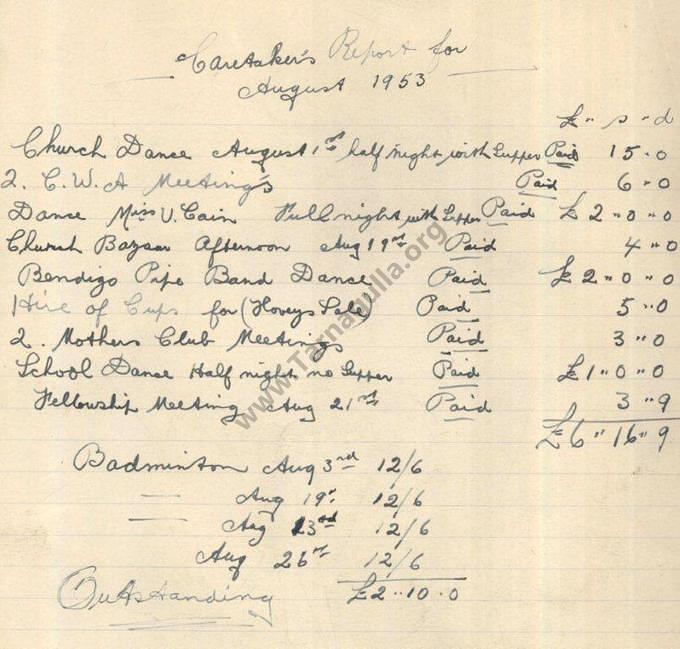 Caretaker's Report for
August 1953
£ " s " d
Church Dance August 1st half night with Supper Paid 15 " 0
2. C.W.A Meetings Paid 6 " 0
Dance Miss V. Cain Full night with Supper Paid £2 " 0 " 0
Church Bazaar Afternoon Aug 19th Paid 4 " 0
Bendigo Pipe Band Dance Paid £2 " 0 " 0
Hire of Cups for (Hoveys Sale) Paid 5 " 0
2. Mothers Club Meetings Paid 3 " 0
School Dance Half night no Supper Paid £1 " 0 " 0
Fellowship Meeting Aug 21st Paid 3 " 9
£6 " 16 " 9
Badminton Aug 3rd 12/6
Aug 19 12/6
Aug 23rd 12/6
Aug 26 12/6
Outstanding £2 " 10 " 0
www.Tarnagulla.org